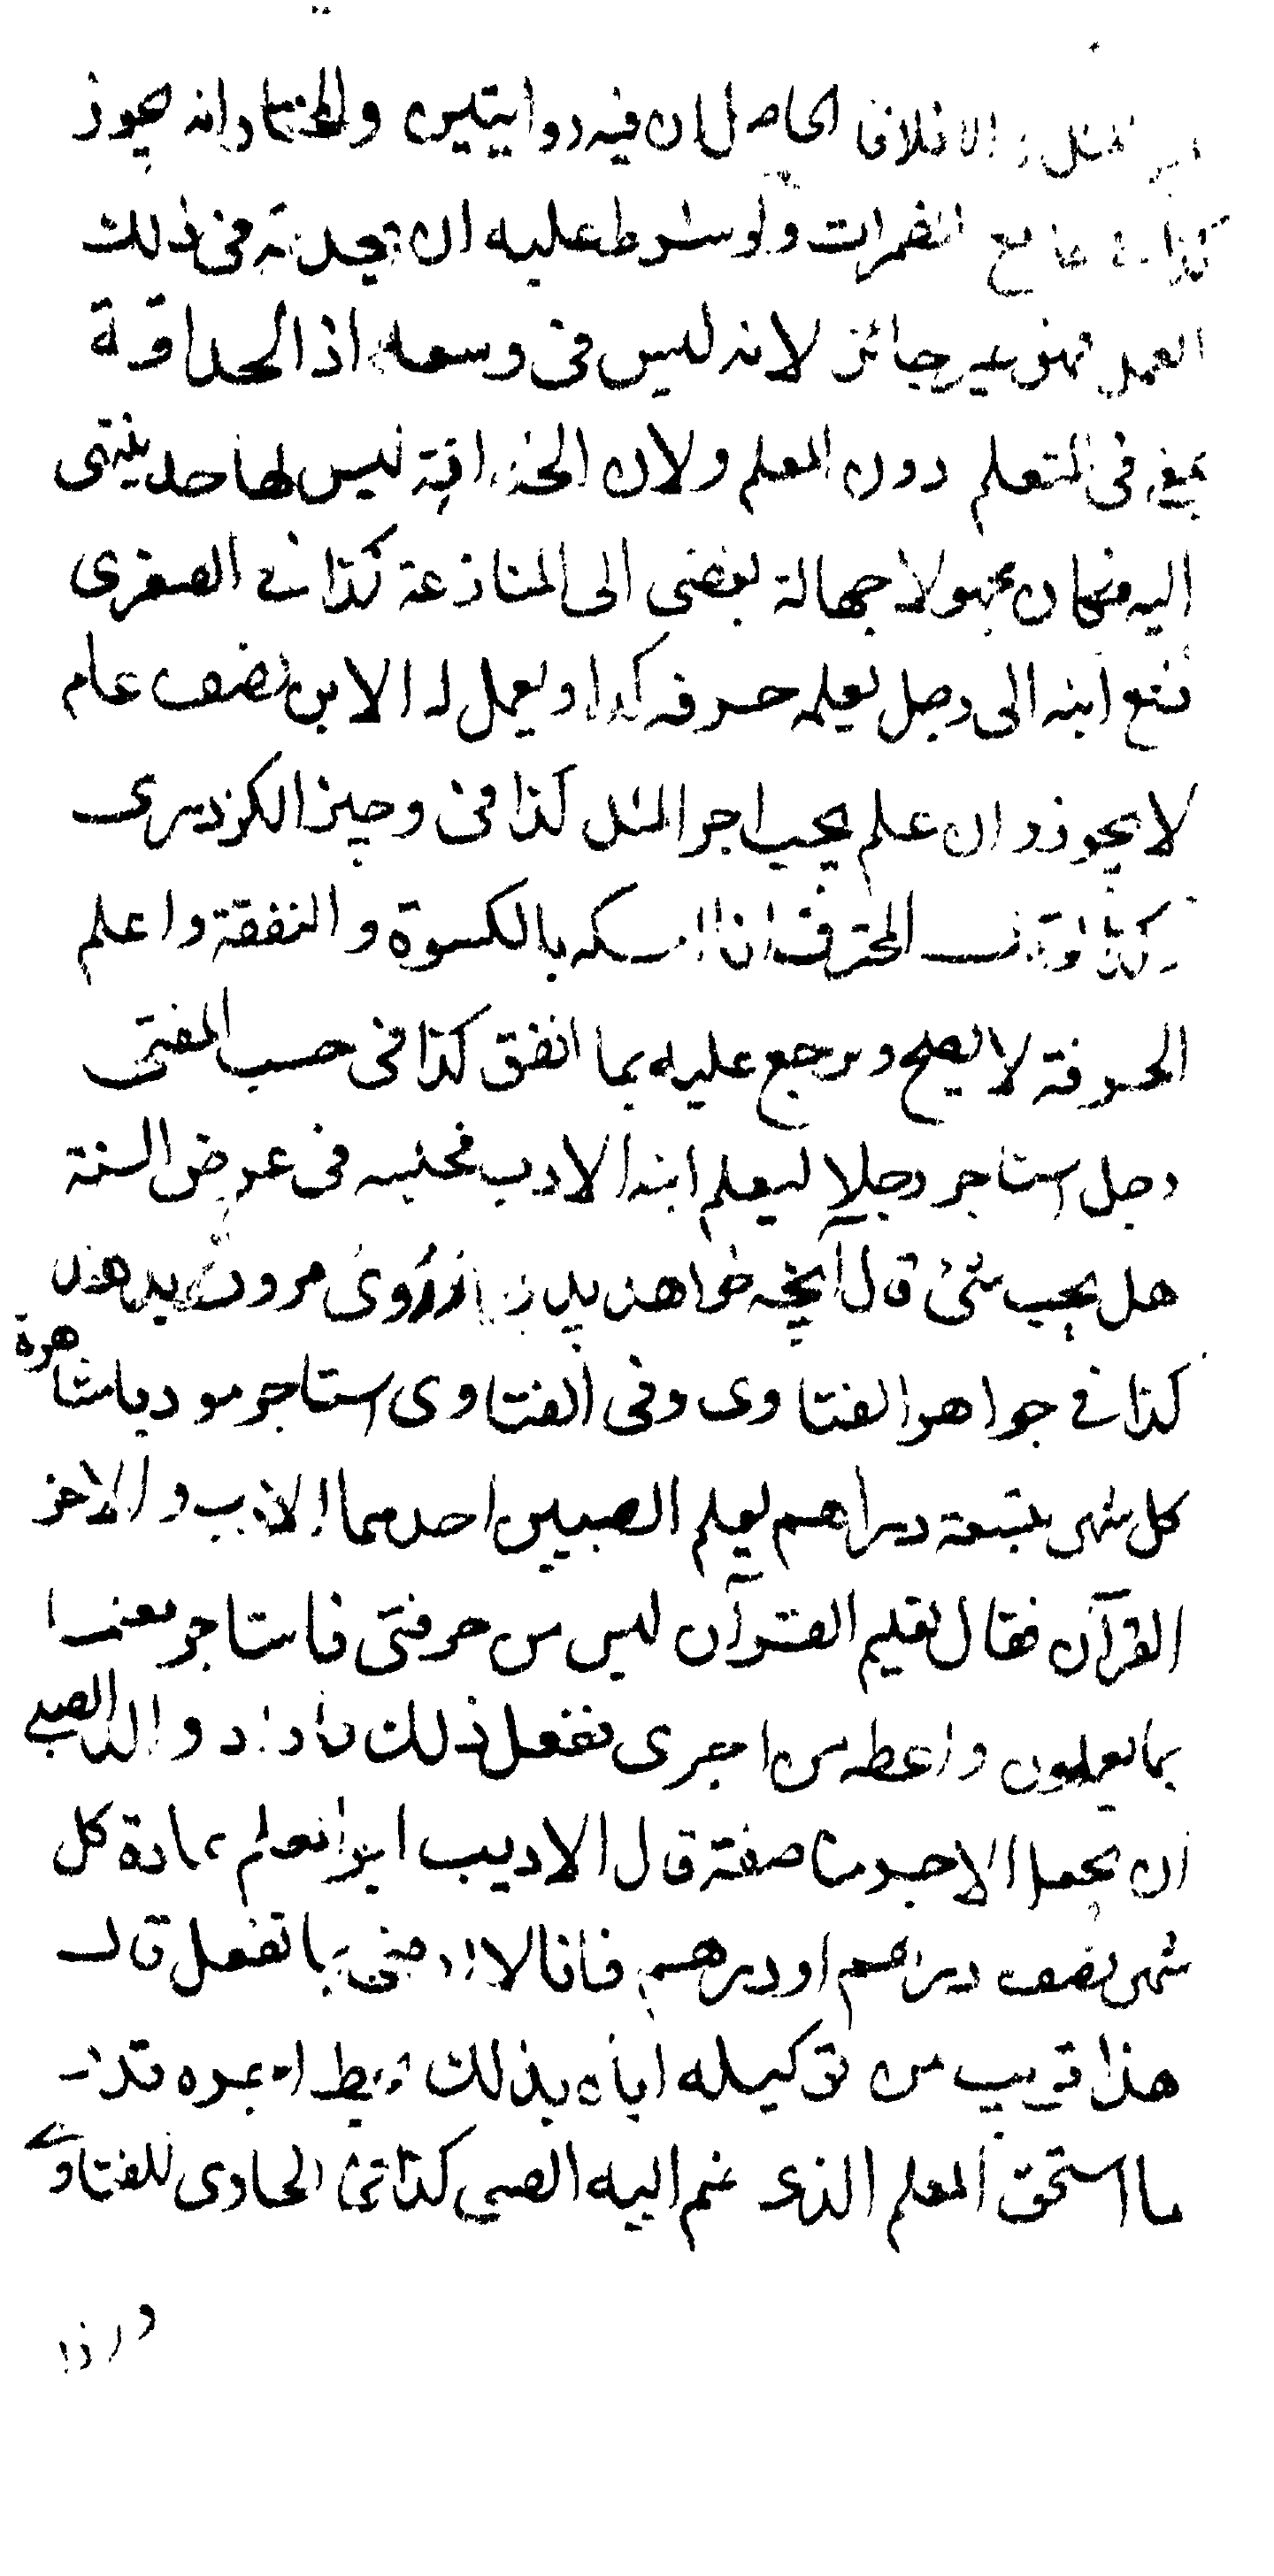 الحاصل ان فيه روايتين والمختار انه يجوز
كذا في المضمرات ولو شرط عليه ان يحذقه في ذلك
العمل فهو غير جائز لانه ليس في وسعه اذ الحذاقة
في المتعلم دون المعلم ولان الحذاقة ليس لها حد ينتهى
اليه فكان مجهولا جهالة يفضى الى المنازعة كذا في الصغرى
دفع ابنه الى رجل يعلمه حرفة كذا ويعمل له الابن نصف عام
لا يجوز وان علم يجب اجر المثل كذا في وجيز الكردرى
المحترف ان امسكه بالكسوة والنفقة واعلم
الحرفة لا يصح ويرجع عليه بما انفق كذا في حسب المفتى
رجل استاجر رجلا ليعلم ابنه الادب فحبسه في عرض السنة
هل يجب شئ قال آنچه خواهد پدر از روى مروت بدهد
كذا في جواهر الفتاوى وفى الفتاوى استاجر مودبا مشاهرة
كل شهر بتسعة دراهم ليعلم الصبيين احدهما الادب والاخر
القرآن فقال تعليم القرآن ليس من حرفتى فاستاجر معلما
بما يعلمون واعطه من اجرى ففعل ذلك فاراد والد الصبي
ان يجعل الاجر مناصفة قال الاديب اجر المعلم عادة كل
شهر نصف درهم او درهم فانا لا ارضى بما تفعل قال
هذا قريب من توكيله اياه بذلك فيحط اجره قدر
ما استحق المعلم الذى ضم اليه الصبى كذا في الحاوى للفتاوى
واذا